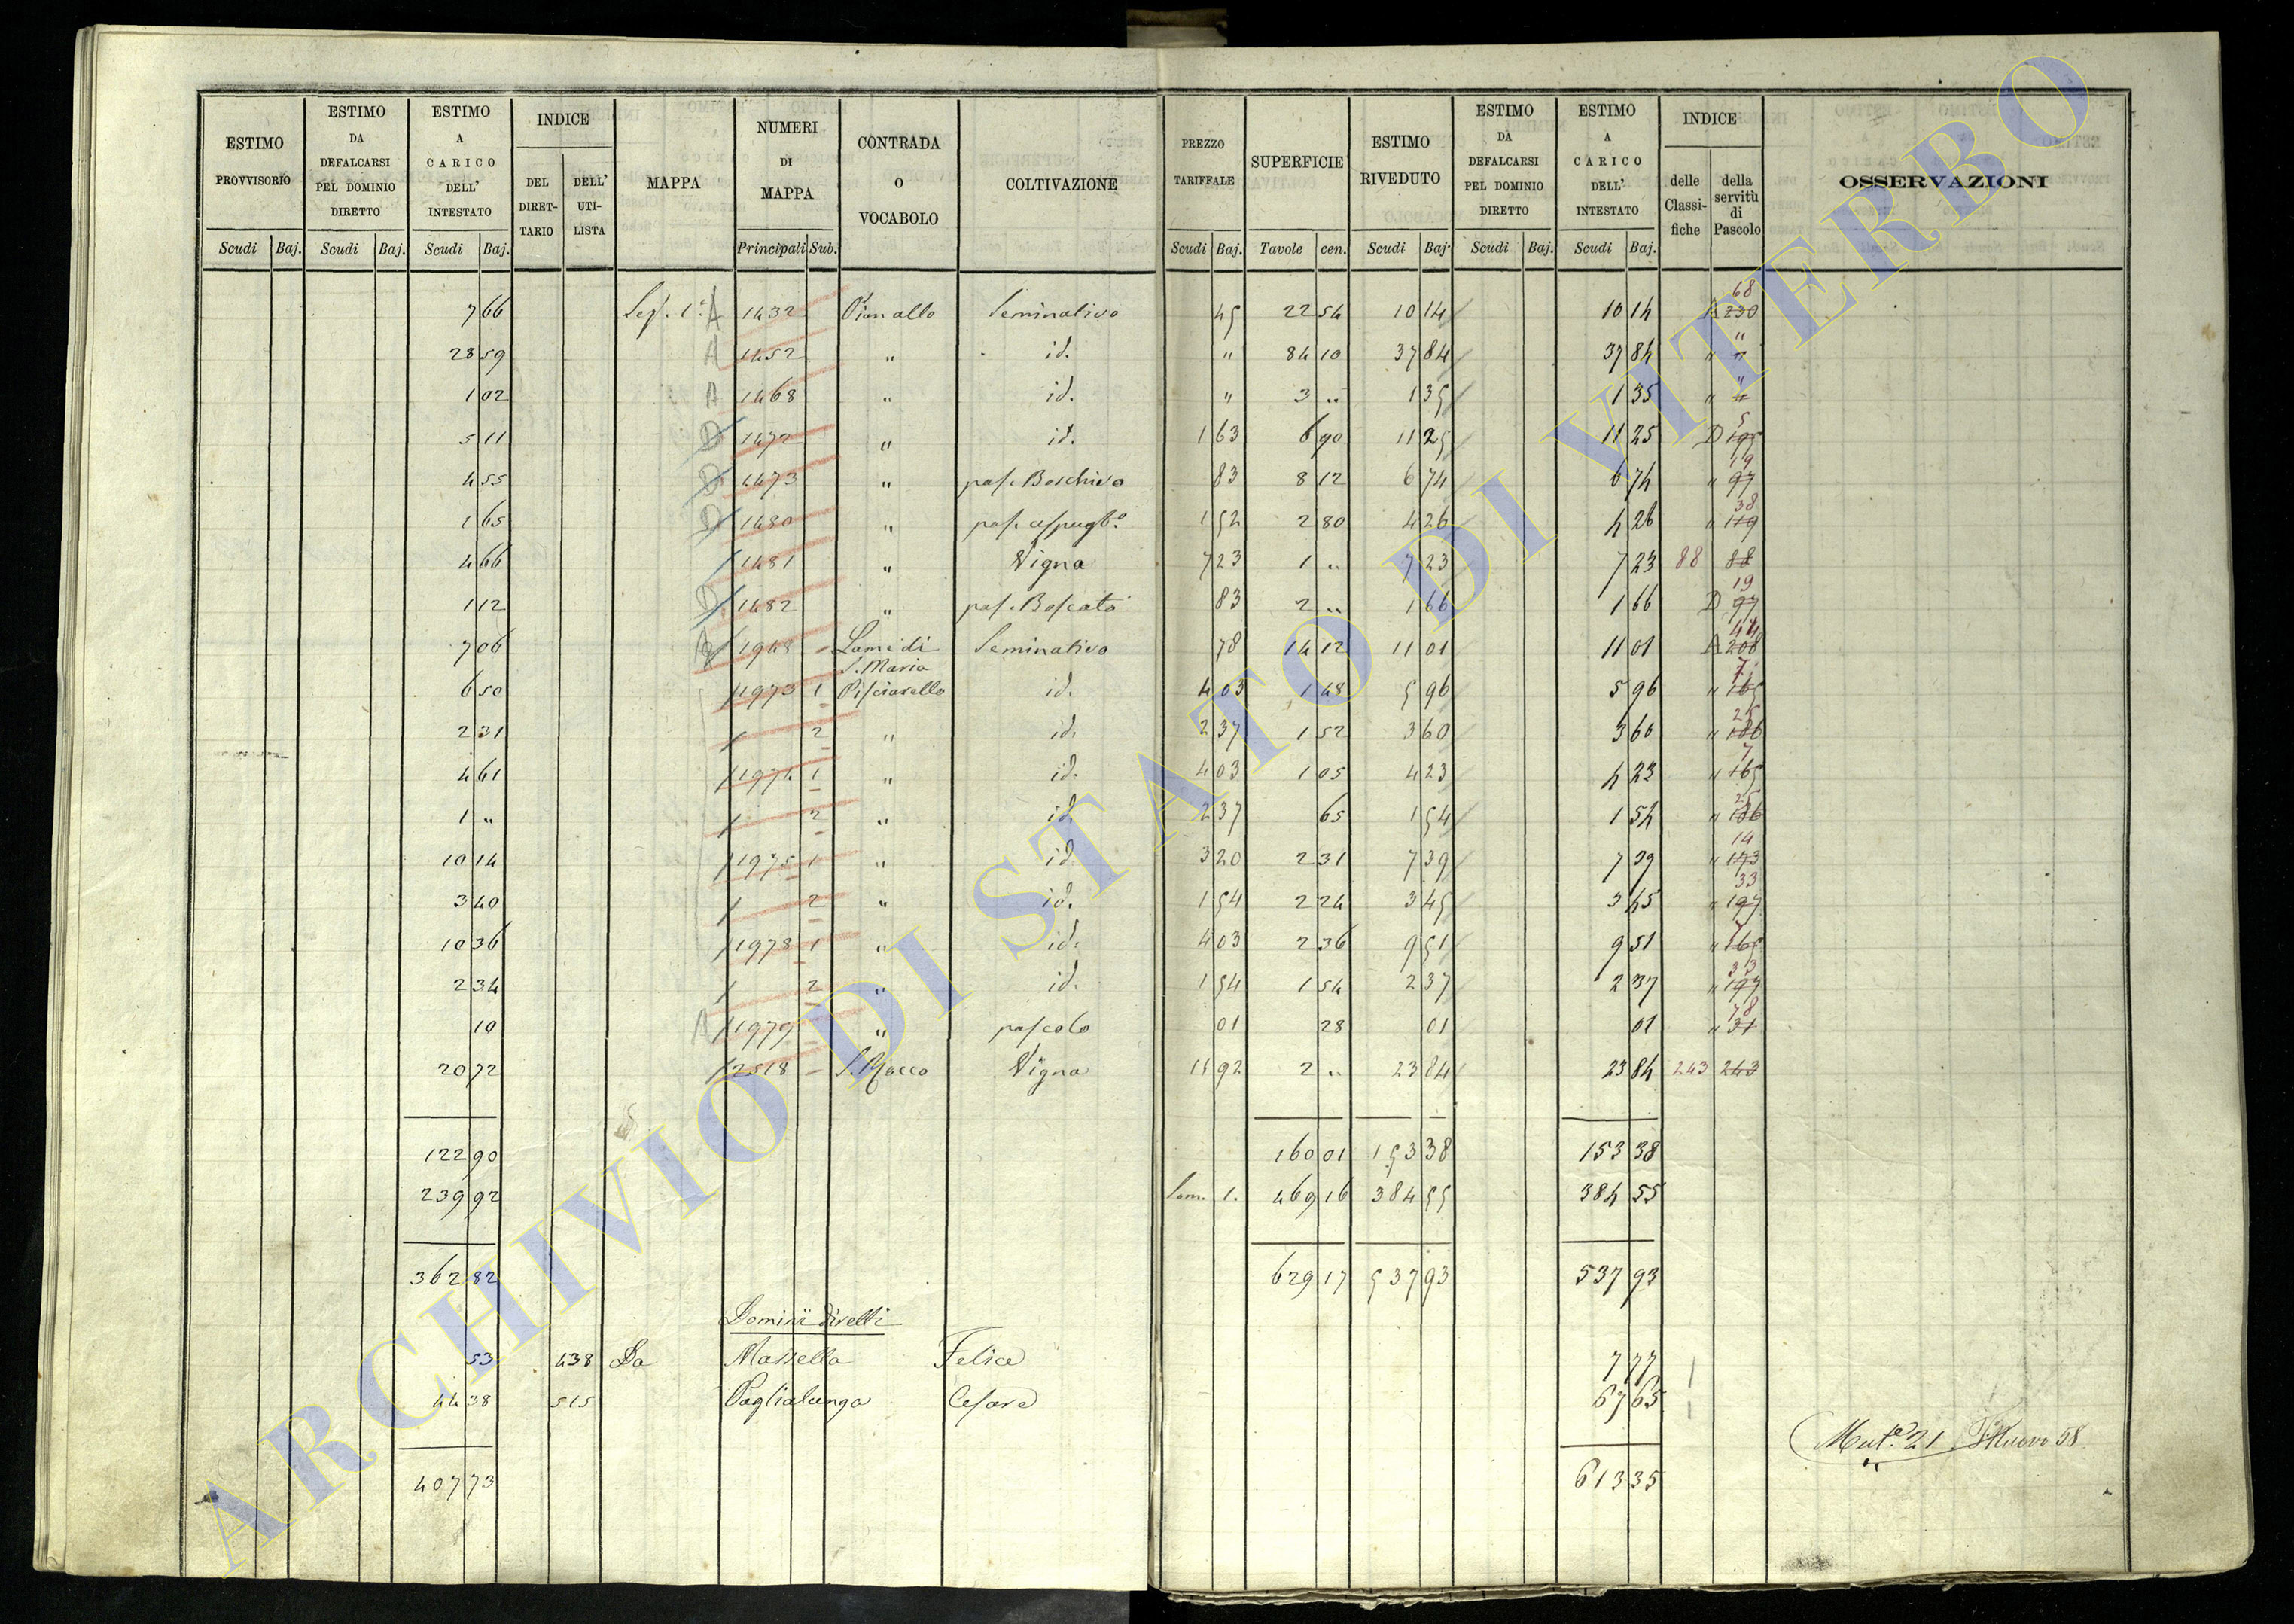 ESTIMO PROVVISORIO Scudi Baj.
ESTIMO DA DEFALCARSI PEL DOMINIO DIRETTO Scudi Baj.
ESTIMO A CARICO DELL' INTESTATO Scudi Baj.
INDICE DEL DIRETTARIO DELL' UTILISTA
MAPPA
NUMERI DI MAPPA Principali Sub.
CONTRADA O VOCABOLO
COLTIVAZIONE
PREZZO TARIFFALE Scudi Baj.
SUPERFICIE Tavole cen.
ESTIMO RIVEDUTO Scudi Baj.
ESTIMO DA DEFALCARSI PEL DOMINIO DIRETTO Scudi Baj.
ESTIMO A CARICO DELL' INTESTATO Scudi Baj.
INDICE delle Classifiche della servitù di Pascolo
OSSERVAZIONI
7 66 Sez. 1ª A 1432 Pian alto Seminativo 45 22 54 10 14 10 14 A 230 68
28 59 A 1452 " id. " 84 10 37 84 37 84 " " "
1 02 A 1468 " id. " 3 " 1 35 1 35 " " "
5 11 D 1472 " id. 1 63 6 90 11 25 11 25 D 195 5
4 55 D 1473 " pas. Boschivo 83 8 12 6 74 6 74 " 97 19
1 65 D 1480 " pas. cespugl.º 1 52 2 80 4 26 4 26 " 119 38
4 66 1481 " Vigna 7 23 1 " 7 23 7 23 88 88
1 12 D 1482 " pas. Boscato 83 2 " 1 66 1 66 D 97 19
7 06 1948 Lame di S. Maria Seminativo 78 14 12 11 01 11 01 A 208 44
6 50 1973 1 Pisciarello id. 4 03 1 48 5 96 5 96 " 165 7
2 31 2 " id. 2 37 1 52 3 60 3 60 " 186 25
4 61 1974 1 " id. 4 03 1 05 4 23 4 23 " 165 7
1 " 2 " id. 2 37 65 1 54 1 54 " 186 25
10 14 1975 1 " id. 3 20 2 31 7 39 7 39 " 173 14
3 40 2 " id. 1 54 2 24 3 45 3 45 " 197 33
10 36 1978 1 " id. 4 03 2 36 9 51 9 51 " 165 7
2 34 2 " id. 1 54 1 54 2 37 2 37 " 197 33
10 A 1979 " pascolo 01 28 01 01 " 31 78
20 72 2518 S. Rocco Vigna 11 92 2 " 23 84 23 84 243 243
122 90 160 01 153 38 153 38
239 92 Som. 1. 469 16 384 55 384 55
362 82 629 17 537 93 537 93
Dominii diretti
53 438 Da Massella Felice 7 77
44 38 515 Paglialunga Cesare 67 65
407 73 613 35
Mut.e 21 Nuovo 58
ARCHIVIO DI STATO DI VITERBO